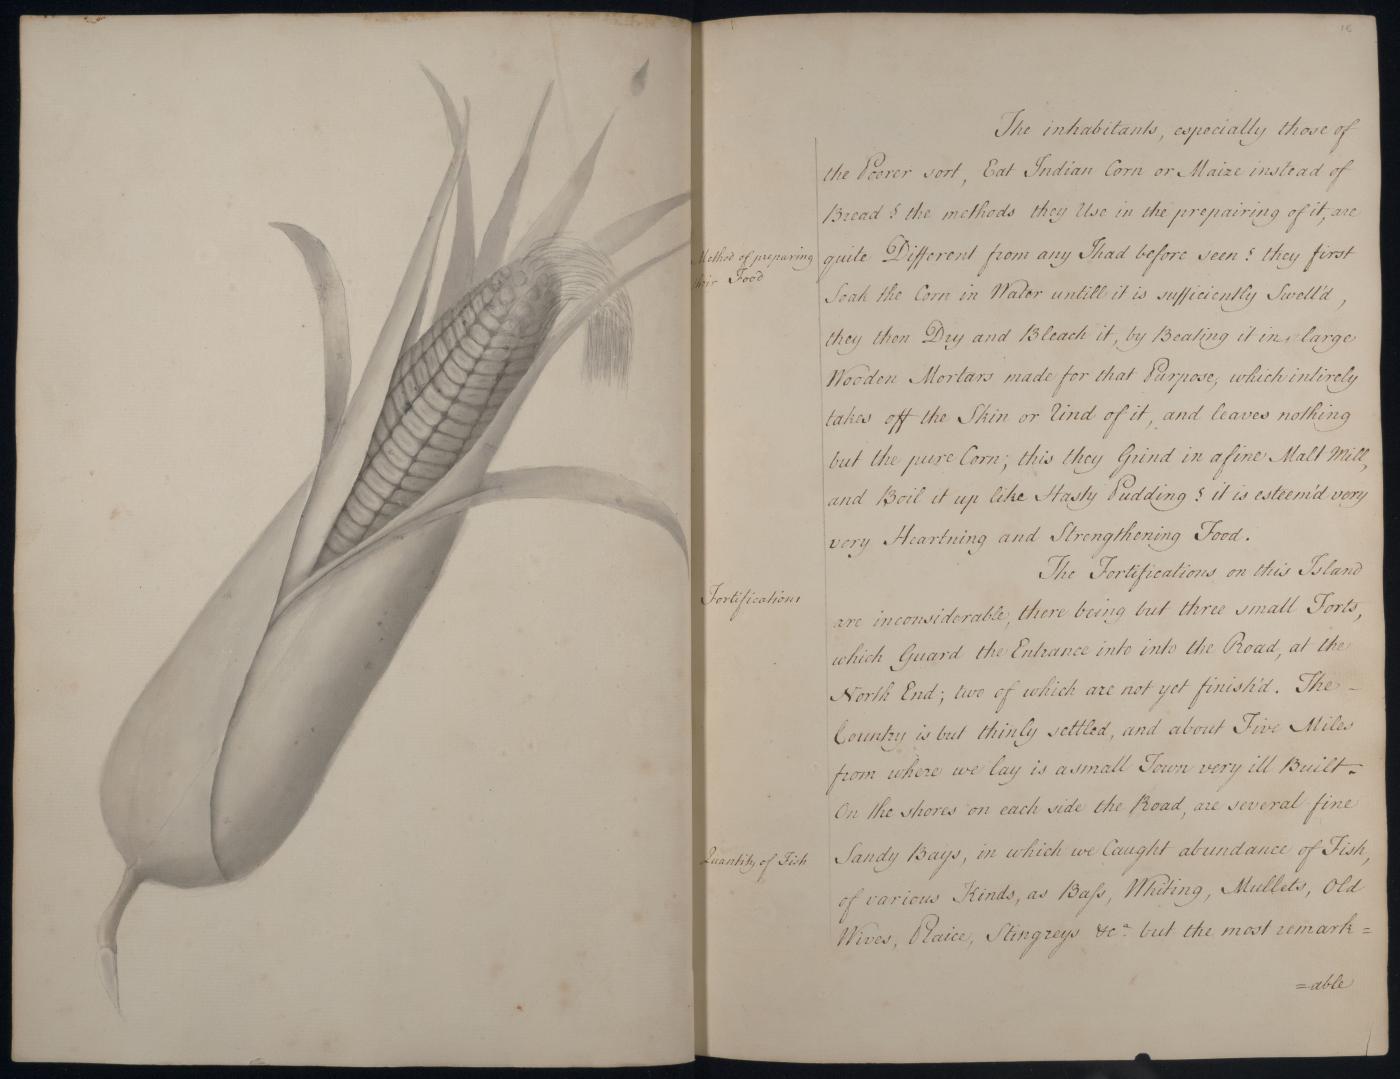 16
The inhabitants, especially those of
the Poorer sort, Eat Indian Corn or Maize instead of
Bread & the methods they Use in the prepairing of it, are
Method of preparing
their Food
quite Different from any I had before seen & they first
Soak the Corn in Water untill it is sufficiently Swell'd,
they then Dry and Bleach it, by Beating it in large
Wooden Mortars made for that Purpose, which intirely
takes off the Skin or Rind of it, and leaves nothing
but the pure Corn; this they Grind in a fine Malt Mill,
and Boil it up like Hasty Pudding & it is esteem'd very
very Heartning and Strengthening Food.
The Fortifications on this Island
Fortifications
are inconsiderable, there being but three small Forts,
which Guard the Entrance into into the Road, at the
North End; two of which are not yet finish'd. The –
Country is but thinly settled, and about Five Miles
from where we lay is a small Town very ill Built –
On the shores on each side the Road, are several fine
Quantity of Fish
Sandy Bays, in which we Caught abundance of Fish,
of various Kinds, as Baſs, Whiting, Mullets, Old
Wives, Plaice, Stingreys &cª but the most remark=
=able